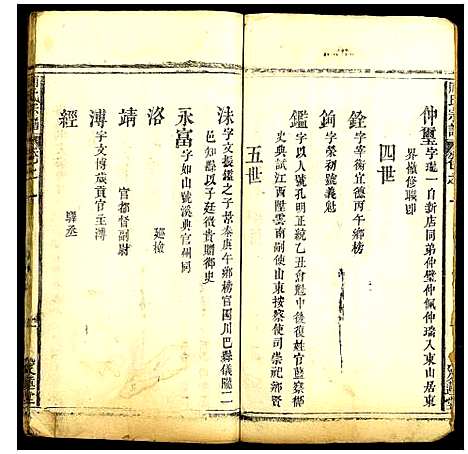 仲璽字遵一自新店同弟仲璧仲佩仲璚入東山居東
界嶺修職郎
四世
銓字等衡宜德丙午鄉榜
鉤字榮初號義魁
鑑字以人號孔明正統乙丑會魁中後復官監察御
史典試江西陞雲南副使山東按察使司崇祀鄉賢
五世
洙字文振鑑之子景泰庚午鄉榜官四川巴縣儀隴二
邑知縣以子廷徵貴贈御史
永富字如山號溪典官州同
洛 巡檢
靖 官都督副尉
溥字文博歲貢官主溥
經 驛丞